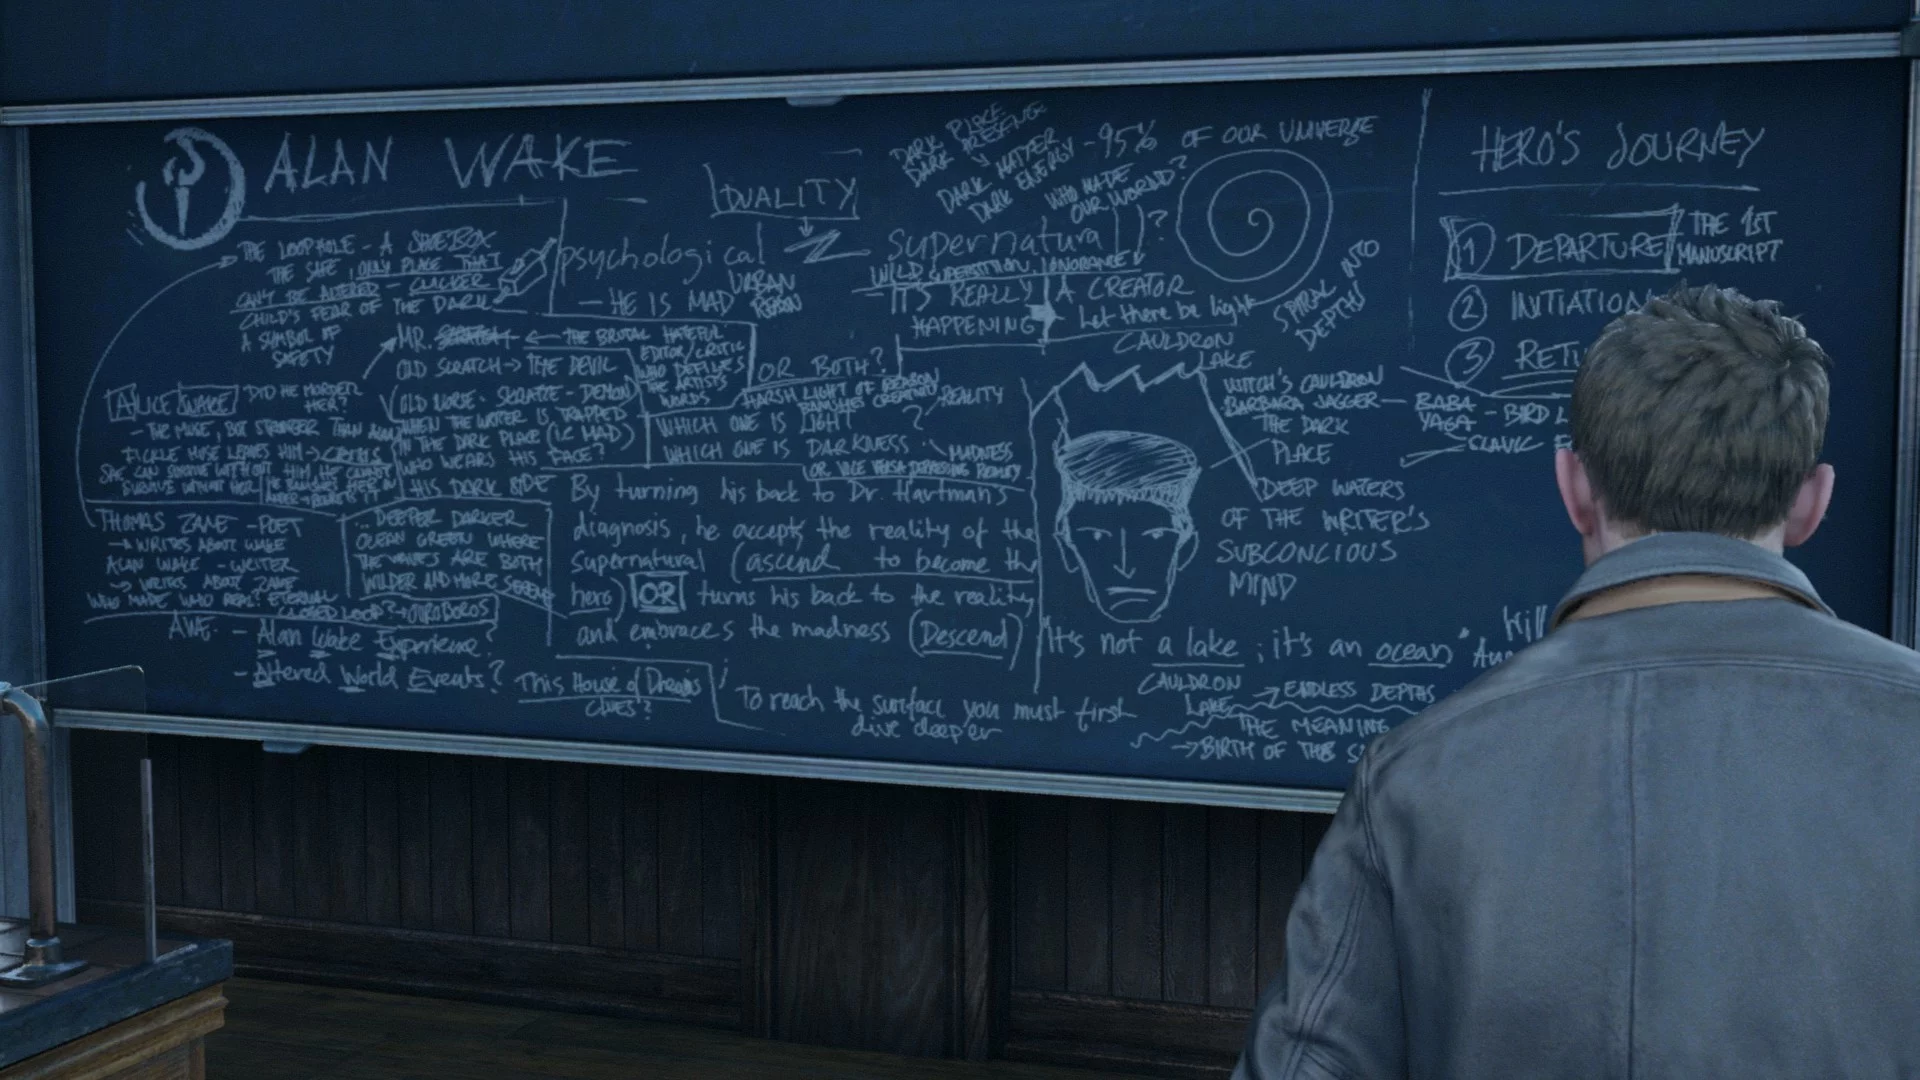 ALAN WAKE
THE LOOPHOLE - A SHOEBOX
THE SAFE, ONLY PLACE THAT
CAN'T BE ALTERED - CLICKER
CHILD'S FEAR OF THE DARK
A SYMBOL OF
SAFETY
MR. SCRATCH ← THE BRUTAL HATEFUL
EDITOR/CRITIC
WHO DEFILES
THE ARTISTS
WORDS
OLD SCRATCH → THE DEVIL
OLD NORSE - SKRATTE - DEMON
WHEN THE WRITER IS TRAPPED
IN THE DARK PLACE (I.E MAD)
WHO WEARS HIS FACE?
HIS DARK SIDE
ALICE WAKE
DID HE MURDER
HER?
- THE MUSE, BUT STRONGER THAN ALAN
FICKLE MUSE LEAVES HIM → CRISIS
SHE CAN SURVIVE WITHOUT HIM, HE CANNOT
SURVIVE WITHOUT HER
THOMAS ZANE - POET
→ WRITES ABOUT WAKE
ALAN WAKE - WRITER
→ WRITES ABOUT ZANE
WHO MADE WHO REAL? ETERNAL
CLOSED LOOP? → OUROBOROS
... DEEPER DARKER
OCEAN GREEN WHERE
THE WAVES ARE BOTH
WILDER AND MORE SERENE
AWE - Alan Wake Experience?
- Altered World Events?
This House of Dreams
CLUES?
DUALITY
psychological
- HE IS MAD
URBAN
supernatural?
WILD SUPERSTITION, IGNORANCE
- IT'S REALLY
HAPPENING
A CREATOR
Let there be light
OR BOTH?
HARSH LIGHT OF REASON
BANISHES CREATION
WHICH ONE IS LIGHT?
WHICH ONE IS DARKNESS
? REALITY
MADNESS
OR VICE VERSA DEPRESSING REALITY
By turning his back to Dr. Hartman's
diagnosis, he accepts the reality of the
supernatural (ascend to become the
hero) OR turns his back to the reality
and embraces the madness (Descend)
To reach the surface you must first
dive deeper
DARK PLACE
DARK PRESENCE
DARK MATTER
DARK ENERGY - 95% OF OUR UNIVERSE
WHO MADE
OUR WORLD?
SPIRAL INTO
DEPTHS
CAULDRON
LAKE
WITCH'S CAULDRON
BARBARA JAGGER - BABA
YAGA - BIRD L
SLAVIC F
THE DARK
PLACE
DEEP WATERS
OF THE WRITER'S
SUBCONCIOUS
MIND
It's not a lake; it's an ocean"
CAULDRON
LAKE
→ ENDLESS DEPTHS
THE MEANING
→ BIRTH OF THE S
HERO'S JOURNEY
1 DEPARTURE
THE 1ST
MANUSCRIPT
2 INITIATION
3 RETU